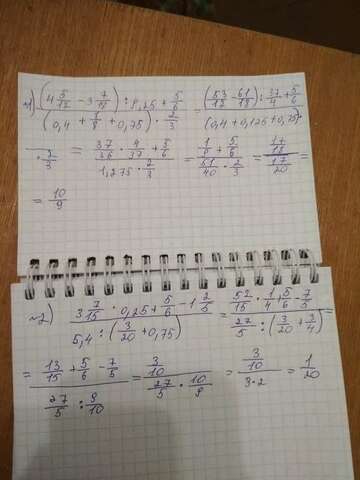 №1) ((4 5/12 - 3 7/18) : 9,25 + 5/6) / ((0,4 + 1/8 + 0,75) · 2/3) = ((53/12 - 61/18) : 37/4 + 5/6) / ((0,4 + 0,125 + 0,75)·
· 2/3) = (37/36 · 4/37 + 5/6) / (1,275 · 2/3) = (1/9 + 5/6) / (51/40 · 2/3) = (17/18) / (17/20) =
= 10/9
№2) (3 7/15 · 0,25 + 5/6 - 1 2/5) / (5,4 : (3/20 + 0,75)) = (52/15 · 1/4 + 5/6 - 7/5) / (27/5 : (3/20 + 3/4)) =
= (13/15 + 5/6 - 7/5) / (27/5 : 9/10) = (3/10) / (27/5 · 10/9) = (3/10) / (3·2) = 1/20